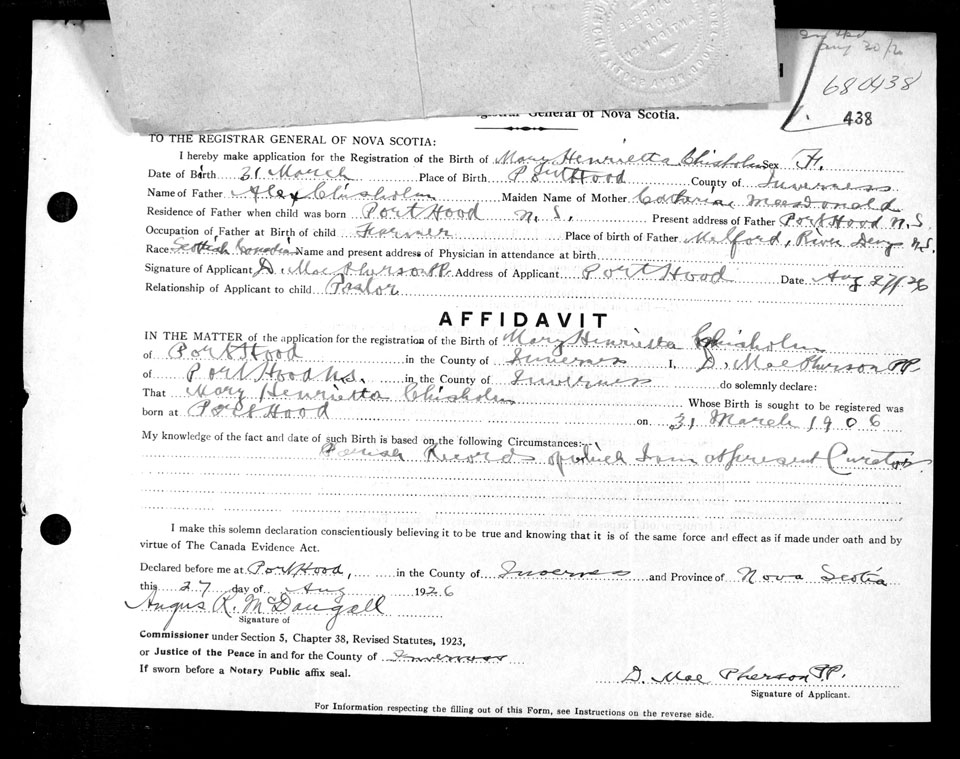 Aug 30/26
680438
438
Registrar General of Nova Scotia.
TO THE REGISTRAR GENERAL OF NOVA SCOTIA:
I hereby make application for the Registration of the Birth of Mary Henrietta Chisholm Sex F.
Date of Birth 31 March Place of Birth Port Hood County of Inverness
Name of Father Alex Chisholm Maiden Name of Mother Catherine MacDonald
Residence of Father when child was born Port Hood N.S. Present address of Father Port Hood N.S.
Occupation of Father at Birth of child Farmer Place of birth of Father Melford, River Deny N.S.
Race Scottish Canadian Name and present address of Physician in attendance at birth
Signature of Applicant D. MacPherson PP. Address of Applicant Port Hood Date Aug 27/26
Relationship of Applicant to child Pastor
AFFIDAVIT
IN THE MATTER of the application for the registration of the Birth of Mary Henrietta Chisholm
of Port Hood in the County of Inverness I, D. MacPherson PP.
of Port Hood N.S. in the County of Inverness do solemnly declare:
That Mary Henrietta Chisholm Whose Birth is sought to be registered was
born at Port Hood on 31 March 1906
My knowledge of the fact and date of such Birth is based on the following Circumstances:
Parish Records of which I am at present Curator.
I make this solemn declaration conscientiously believing it to be true and knowing that it is of the same force and effect as if made under oath and by
virtue of The Canada Evidence Act.
Declared before me at Port Hood, in the County of Inverness and Province of Nova Scotia
this 27 day of Aug 1926
Angus R. McDougall
Signature of
Commissioner under Section 5, Chapter 38, Revised Statutes, 1923,
or Justice of the Peace in and for the County of Inverness
If sworn before a Notary Public affix seal.
D. MacPherson PP.
Signature of Applicant.
For Information respecting the filling out of this Form, see Instructions on the reverse side.